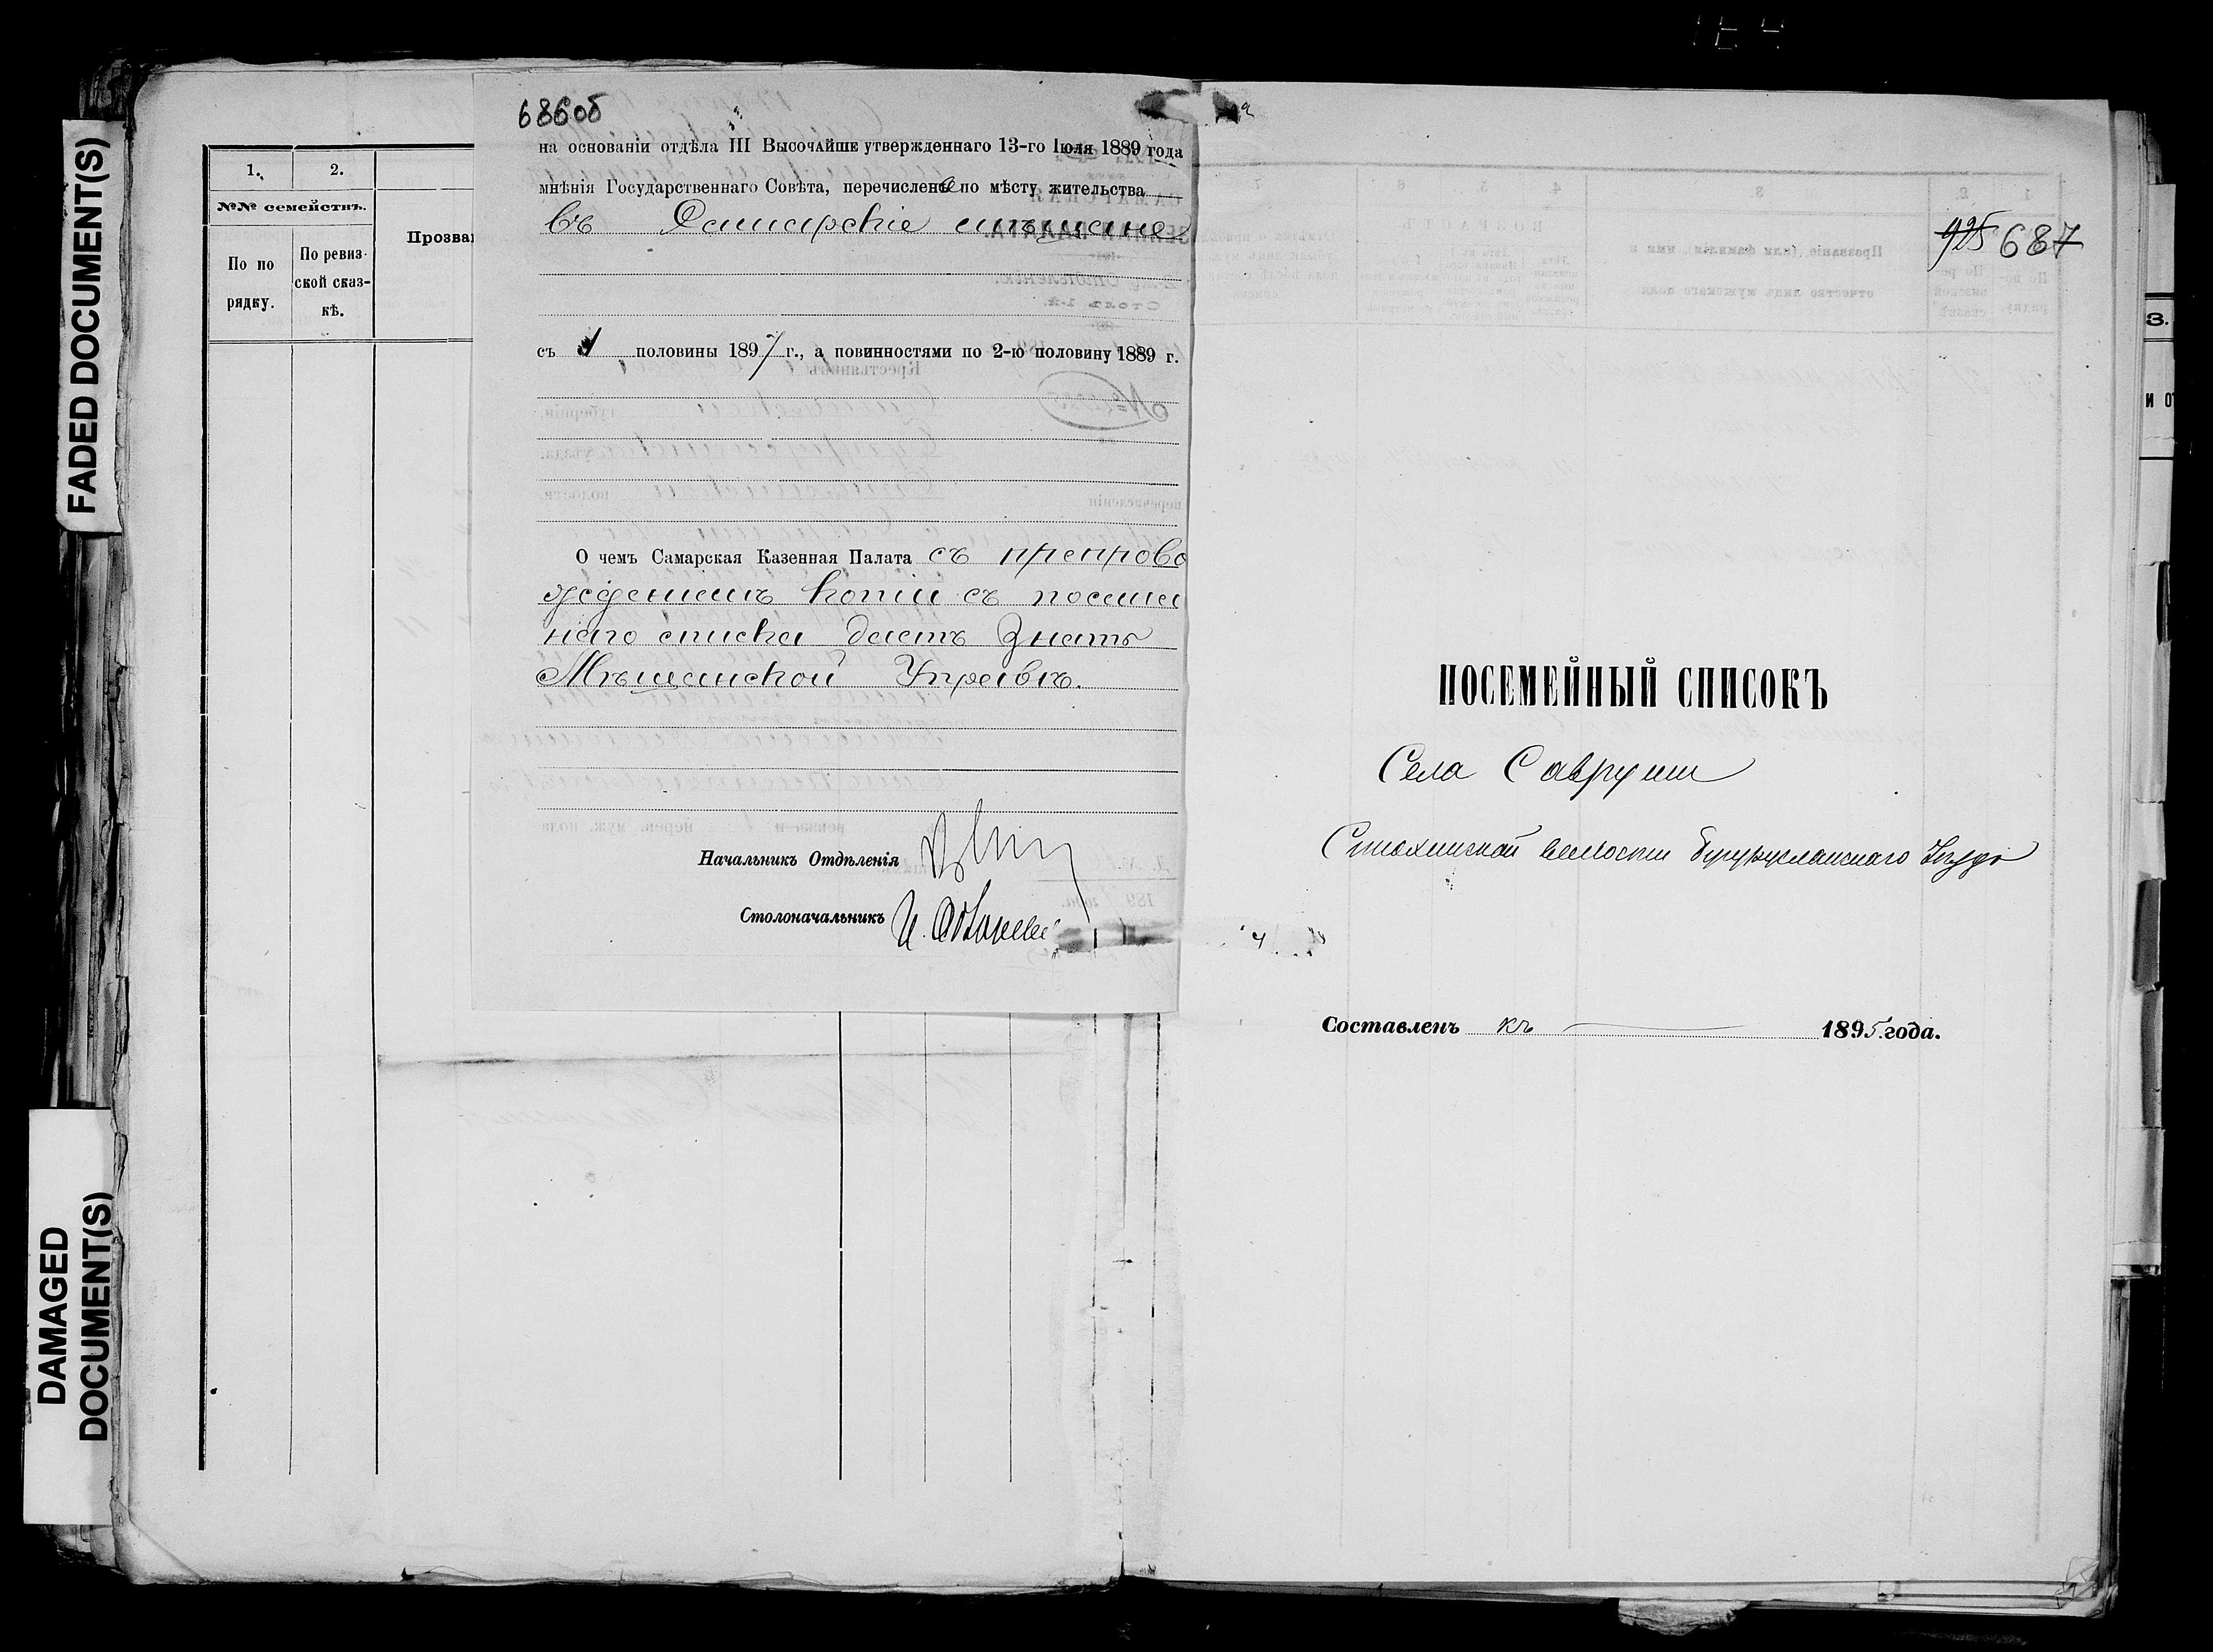 FADED DOCUMENT(S)
DAMAGED
DOCUMENT(S)
1.
2.
№№ семействъ.
По по
рядку.
По ревиз-
ской сказ-
кѣ.
Прозва
686об
на основаніи отдѣла III Высочайше утвержденнаго 13-го Іюля 1889 года
мнѣнія Государственнаго Совѣта, перечислены по мѣсту жительства
въ Самарскіе мѣщане
съ половины 1897 г., а повинностями по 2-ю половину 1889 г.
О чемъ Самарская Казенная Палата съ препрово
жденіемъ копіи съ посемей
наго списка даетъ знать
Мѣщанской Управѣ.
Начальникъ Отдѣленія
Столоначальникъ И.
925 687
ПОСЕМЕЙНЫЙ СПИСОКЪ
Села Савруши
волости Бугурусланскаго Уѣзда
Составленъ къ 1895 года.
3.